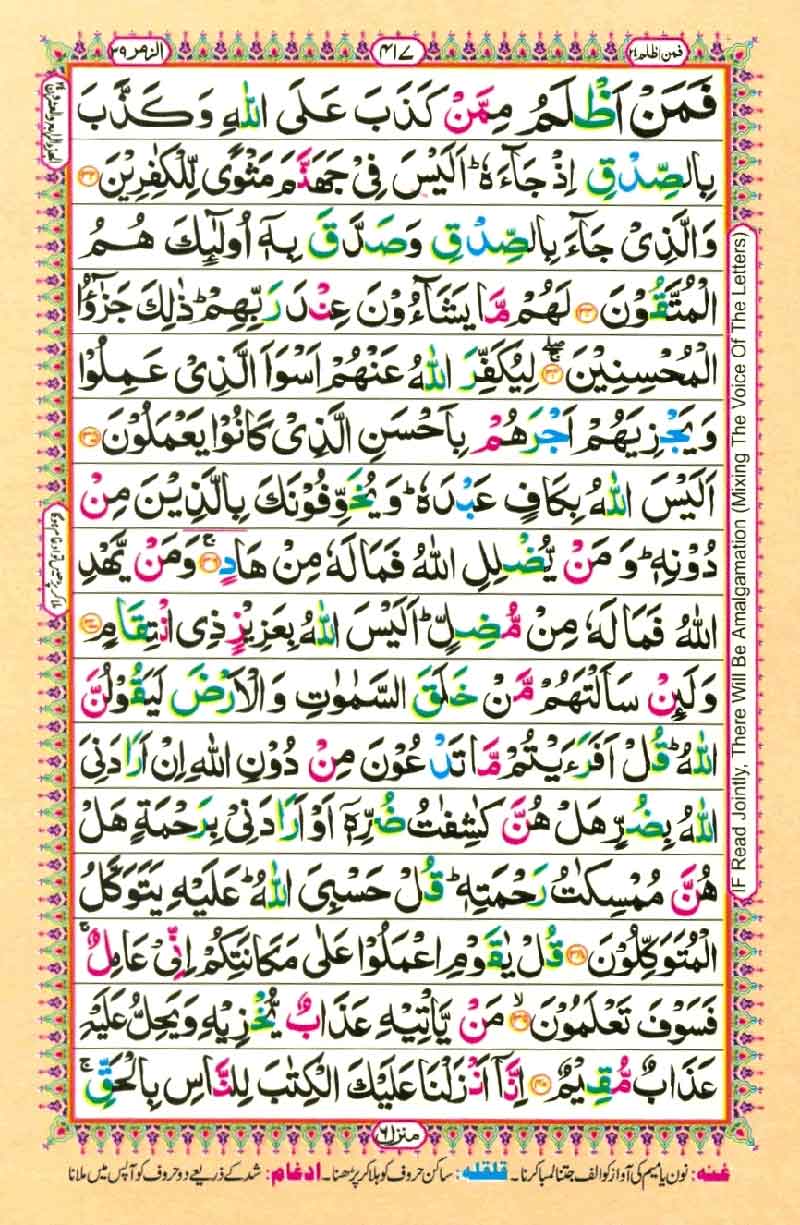 فمن اظلم ۲۴
۴۱۷
الزمر ۳۹
فَمَنْ اَظْلَمُ مِمَّنْ كَذَبَ عَلَى اللّٰهِ وَ كَذَّبَ
بِالصِّدْقِ اِذْ جَآءَهٗ ؕ اَلَیْسَ فِیْ جَهَنَّمَ مَثْوًی لِّلْكٰفِرِیْنَ ﴿۳۲﴾
وَالَّذِیْ جَآءَ بِالصِّدْقِ وَصَدَّقَ بِهٖۤ اُولٰٓئِكَ هُمُ
الْمُتَّقُوْنَ ﴿۳۳﴾ لَهُمْ مَّا یَشَآءُوْنَ عِنْدَ رَبِّهِمْ ؕ ذٰلِكَ جَزٰٓؤُا
الْمُحْسِنِیْنَ ﴿۳۴﴾ لِیُكَفِّرَ اللّٰهُ عَنْهُمْ اَسْوَاَ الَّذِیْ عَمِلُوْا
وَیَجْزِیَهُمْ اَجْرَهُمْ بِاَحْسَنِ الَّذِیْ كَانُوْا یَعْمَلُوْنَ ﴿۳۵﴾
اَلَیْسَ اللّٰهُ بِكَافٍ عَبْدَهٗ ؕ وَیُخَوِّفُوْنَكَ بِالَّذِیْنَ مِنْ
دُوْنِهٖ ؕ وَ مَنْ یُّضْلِلِ اللّٰهُ فَمَا لَهٗ مِنْ هَادٍ ﴿۳۶﴾ ۚ وَمَنْ یَّهْدِ
اللّٰهُ فَمَا لَهٗ مِنْ مُّضِلٍّ ؕ اَلَیْسَ اللّٰهُ بِعَزِیْزٍ ذِی انْتِقَامٍ ﴿۳۷﴾
وَلَئِنْ سَاَلْتَهُمْ مَّنْ خَلَقَ السَّمٰوٰتِ وَ الْاَرْضَ لَیَقُوْلُنَّ
اللّٰهُ ؕ قُلْ اَفَرَءَیْتُمْ مَّا تَدْعُوْنَ مِنْ دُوْنِ اللّٰهِ اِنْ اَرَادَنِیَ
اللّٰهُ بِضُرٍّ هَلْ هُنَّ كٰشِفٰتُ ضُرِّهٖۤ اَوْ اَرَادَنِیْ بِرَحْمَةٍ هَلْ
هُنَّ مُمْسِكٰتُ رَحْمَتِهٖ ؕ قُلْ حَسْبِیَ اللّٰهُ ؕ عَلَیْهِ یَتَوَكَّلُ
الْمُتَوَكِّلُوْنَ ﴿۳۸﴾ قُلْ یٰقَوْمِ اعْمَلُوْا عَلٰی مَكَانَتِكُمْ اِنِّیْ عَامِلٌ ۚ
فَسَوْفَ تَعْلَمُوْنَ ﴿۳۹﴾ ۙ مَنْ یَّاْتِیْهِ عَذَابٌ یُّخْزِیْهِ وَیَحِلُّ عَلَیْهِ
عَذَابٌ مُّقِیْمٌ ﴿۴۰﴾ اِنَّاۤ اَنْزَلْنَا عَلَیْكَ الْكِتٰبَ لِلنَّاسِ بِالْحَقِّ ۚ
منزل ۶
غنه: نون یا میم کی آواز کو الف جتنا لمبا کرنا۔ قلقله: ساکن حروف کو ہلا کر پڑھنا۔ ادغام: شد کے ذریعے دو حروف کو آپس میں ملانا
IF Read Jointly, There Will Be Amalgamation (Mixing The Voice Of The Letters)